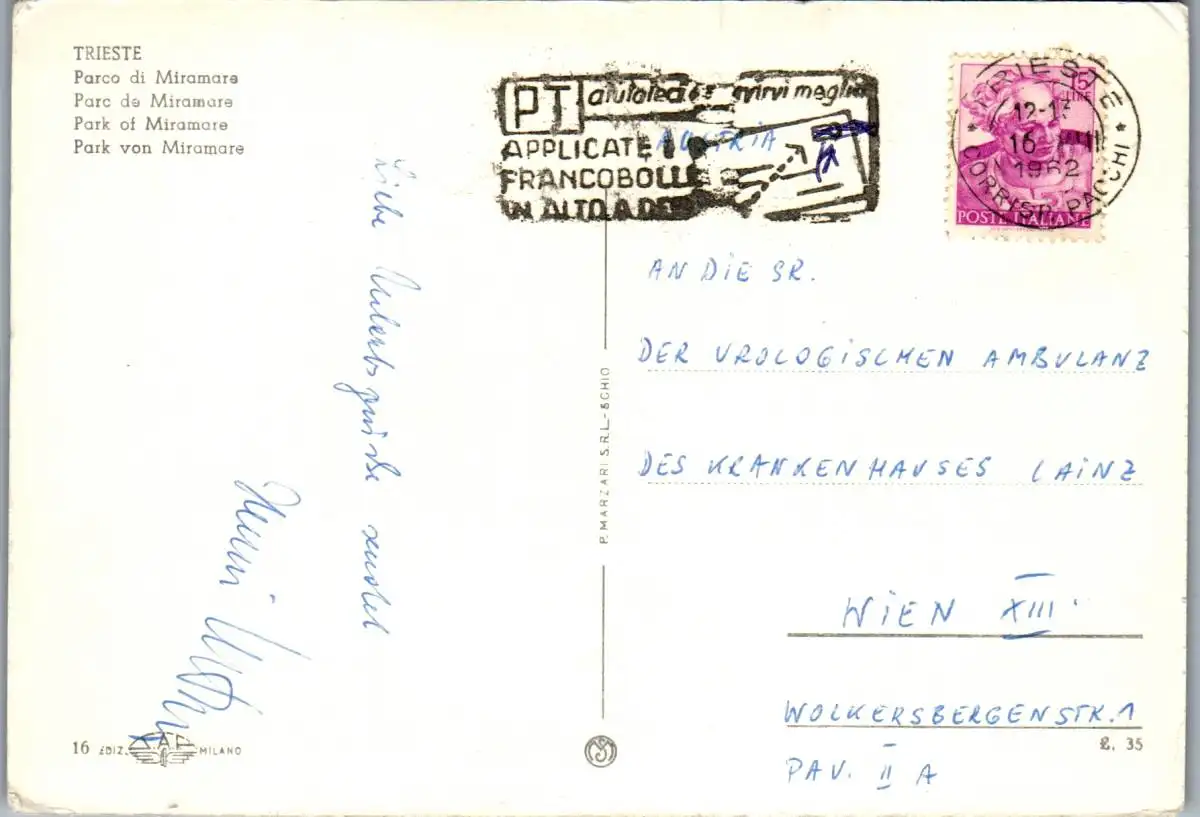 TRIESTE
Parco di Miramare
Parc de Miramare
Park of Miramare
Park von Miramare
PT
APPLICATE I
FRANCOBOLLI
IN ALTO A DES
AUSTRIA
15
LIRE
POSTE ITALIANE
TRIESTE
16
1962
CORRISP. PACCHI
Liebe Urlaubsgrüße sendet
AN DIE SR.
DER UROLOGISCHEN AMBULANZ
DES KRANKENHAUSES LAINZ
WIEN XIII.
WOLKERSBERGENSTR. 1
PAV. II A
P. MARZARI S.R.L. - SCHIO
16 EDIZ. MILANO
£. 35